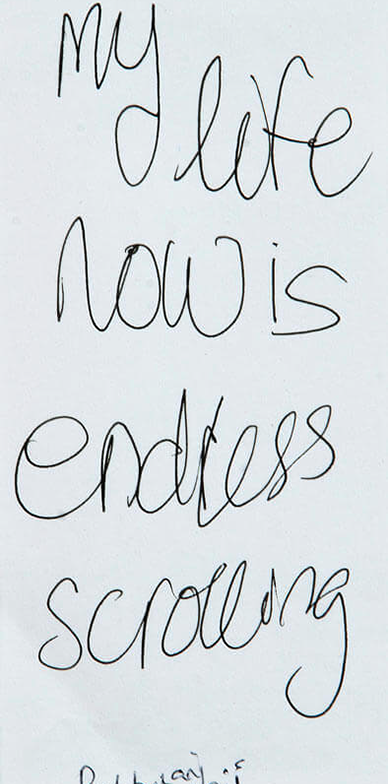 my
life
now is
endless
scrolling